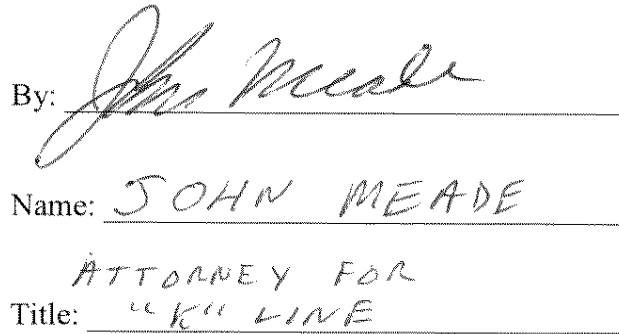 By: John Meade
Name: JOHN MEADE
ATTORNEY FOR
Title: "K" LINE